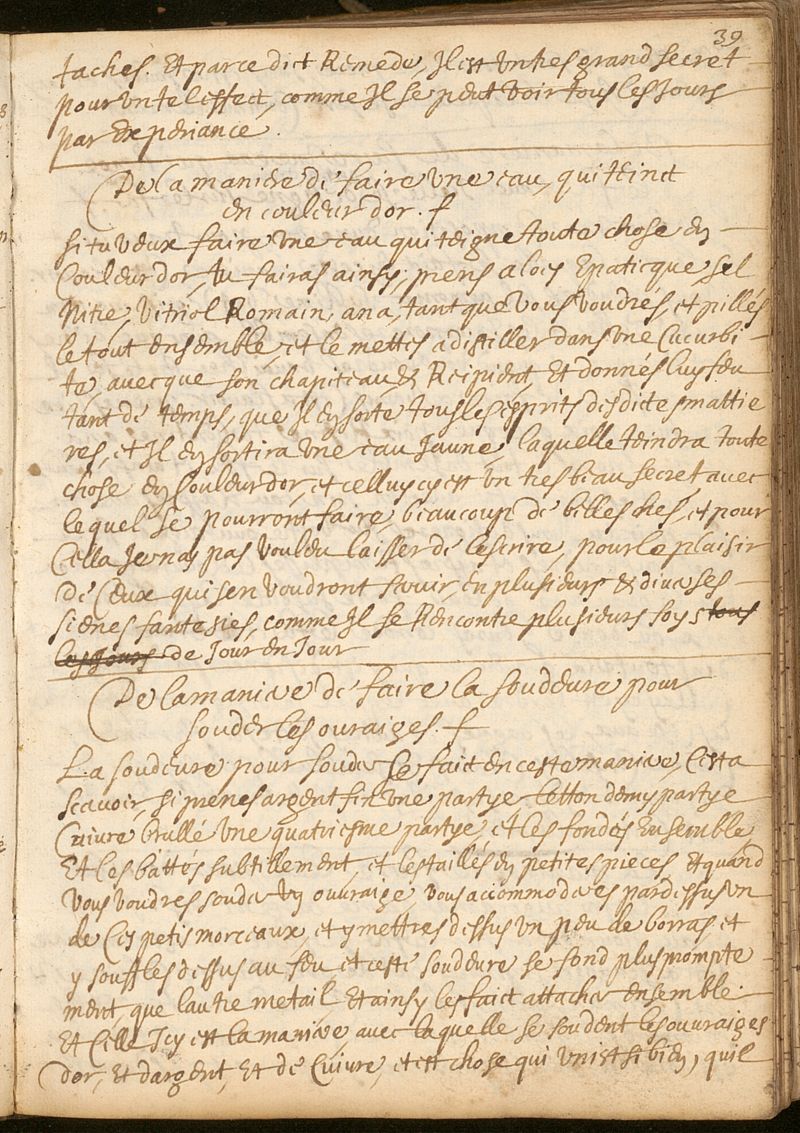 39
taches. Et par ce dict Remede, Il est un tres grand secret
pour un tel effect, comme Il se peut voir tous les Jours
par Experiance.
De la maniere de faire une eau, qui teinct
en couleur dor. f
si tu veux faire une eau qui teigne toute chose en
Couleur dor, tu fairas ainsy, prens aloes Epaticque, sel
Nitre, Vitriol Romain, ana, tant que vous voudrés, et pillés
le tout ensemble, et le mettes a distiller dans une Cucurbi
te, avecque son chapiteau & Recipient, Et donnés luy feu
tant de temps, que Il en sorte tous les esprits desdictes mattie
res, et Il en sortira une eau Jaune, laquelle teindra toute
chose en Couleur dor, et celluy cy est un tres beau secret avec
lequel se pourront faire, beaucoup de belles ches, et pour
Cella Je nay pas vouleu laisser de lescrire, pour le plaisir
de Ceux qui sen voudront servir, en plusieurs & diverses
sienes fantesies, comme Il se Rencontre plusieurs foys tous
les Jours de Jour en Jour
De la maniere de faire la soudeure pour
souder les ouraiges. f
La soudeure pour souder Ce faict en ceste maniere, Cest a
scavoir, si prenes argent fin une partye Letton demy partye
Cuivre brullé une quatriesme partye, et les fondés Ensemble
Et les battés subtillement, et les taillés en petites pieces Et quand
vous voudres souder un ouvraige, vous accommoderes par dessus un
de Ces petis morceaux, et y mettres dessus un peu de borras et
y souffles dessus au feu et ceste soudeure se fond plus prompte
ment, que lautre metail, Et ainsy les faict attacher ensemble.
Et Celle Icy est la maniere, avec laquelle se soudent les ouvraiges
dor, Et dargent, Et de Cuivre, et est chose qui unist si bien, quil